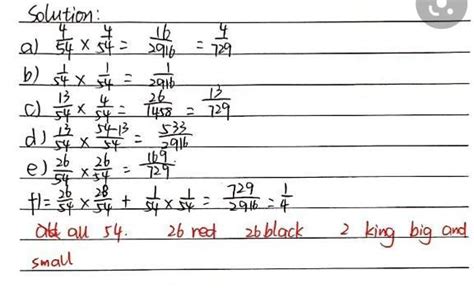 Solution:
a) 4/54 × 4/54 = 16/2916 = 4/729
b) 1/54 × 1/54 = 1/2916
c) 13/54 × 4/54 = 26/1458 = 13/729
d) 13/54 × 54-13/54 = 533/2916
e) 26/54 × 26/54 = 169/729
f) = 26/54 × 28/54 + 1/54 × 1/54 = 729/2916 = 1/4
all 54. 26 red 26 black 2 king big and
small